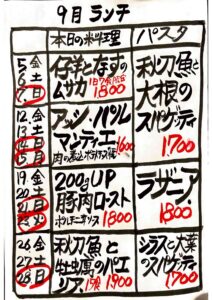 9月 ランチ
本日の料理
パスタ
5 金
6 土
7 日
仔羊と茄子の
ムサカ 1800
秋刀魚と
大根の
スパゲッティ
1700
12 金
13 土
14 日
15 月
アッシ・パル
マンティエ
1600
19 金
20 土
21 日
23 火
200gUP
豚肉ロースト
ポルチーニソース 1800
ラザニア
1800
26 金
27 土
28 日
秋刀魚と
牡蠣のパエ
リア 1900
シラスと大葉
のスパゲッティ
1700